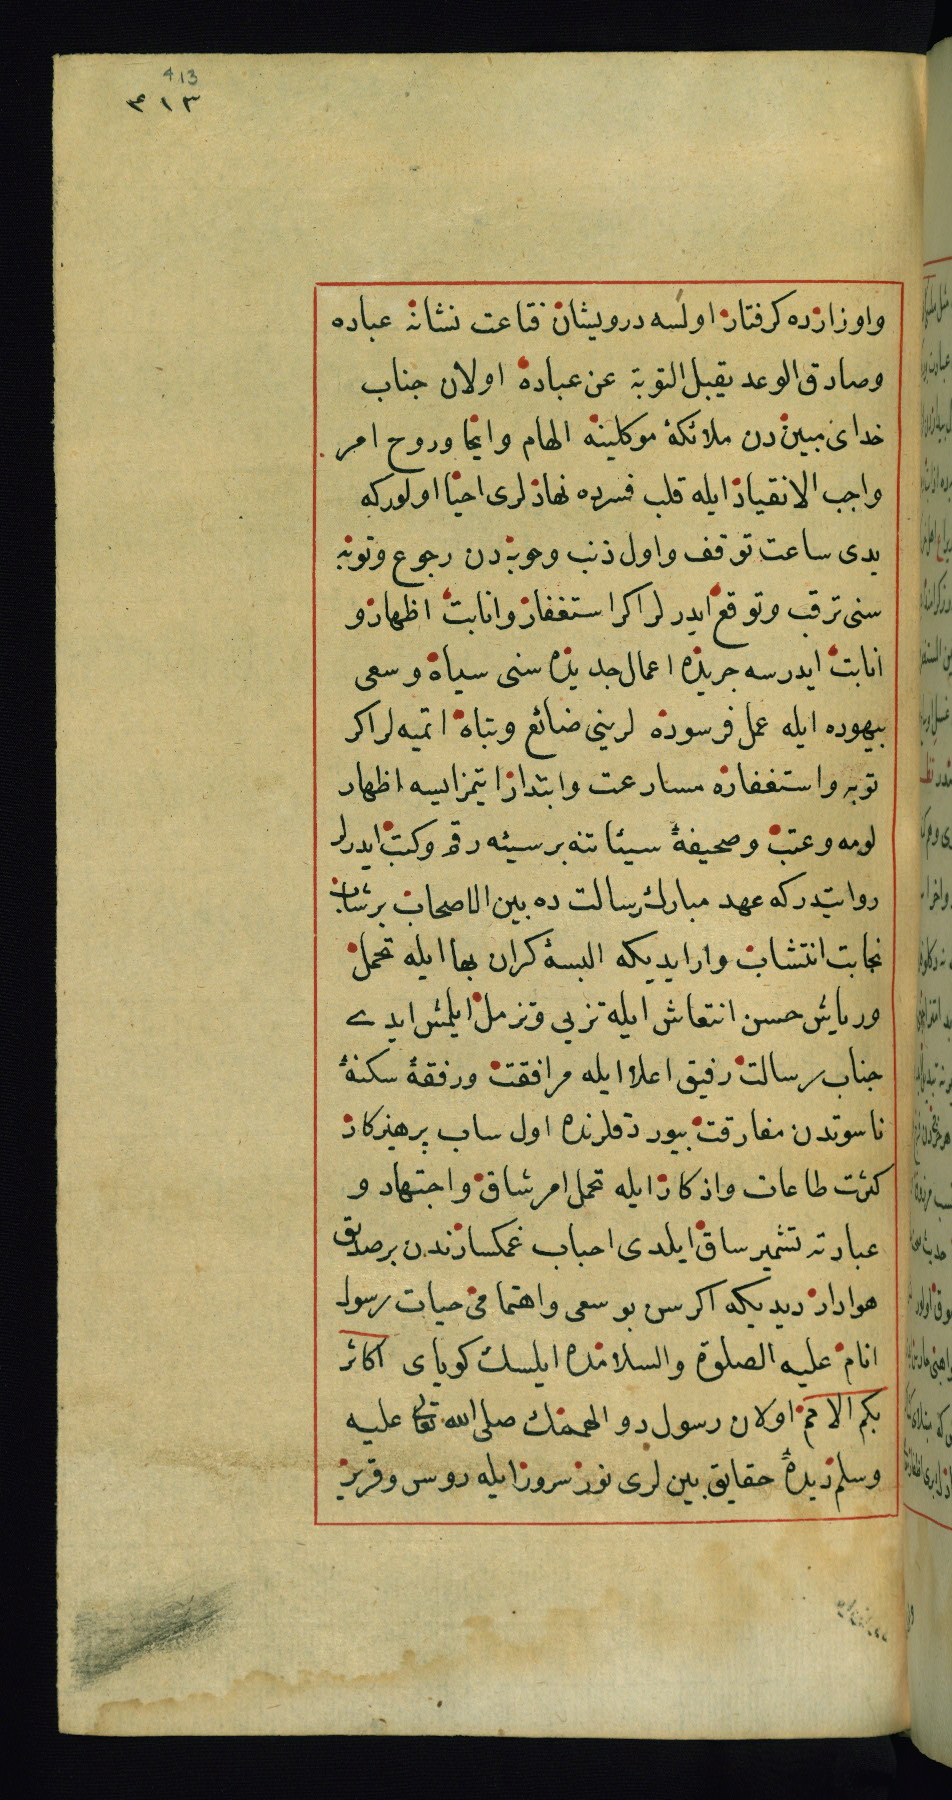 413
٤١٣
واوزارده كرفتار اولسه درويشان قناعت نشانه عباده
وصادق الوعد يقبل التوبة عن عباده اولان جناب
خداى مبين دن ملائكهٔ موكلينه الهام وايحا وروح امر
واجب الانقياد ايله قلب فسرده نهادلرى احيا اولوركه
يدى ساعت توقف واول ذنب وحوبه دن رجوع وتوبه
سنى ترقب وتوقع ايدرلر اكر استغفار وانابت اظهار و
انابت ايدرسه جريده اعمال جديده سنى سياه وسعى
بيهوده ايله عمل فرسوده لرينى ضائع وتباه اتميه لر اكر
توبه واستغفاره مسارعت وابتدار ايتمز ايسه اظهار
لومه وعتب وصحيفهٔ سيئاتنه بر سيئه رقم وكتب ايدرلر
روايتدركه عهد مبارك رسالت ده بين الاصحاب بر شاب
نجابت انتشاب وار ايديكه البسهٔ كران بها ايله تجمل
ورياش حسن انتعاش ايله تزيى وتزمل ايلمش ايدى
جناب رسالت رفيق اعلا ايله مرافقت ورفقهٔ سكنهٔ
ناسوتدن مفارقت بيوردقلرنده اول ساب پرهيزكار
كثرت طاعات واذكار ايله تحمل امر شاق واجتهاد و
عبادته تشمير ساق ايلدى احباب غمكسارندن بر صديق
هوادار ديديكه اكر سن بو سعى واهتمامى حيات رسول
انام عليه الصلوة والسلامده ايلسك كوياى اكاثر
بكم الامم اولان رسول ذو الهممك صلى الله تعالى عليه
وسلم ديدهٔ حقايق بين لرى نور سرور ايله روسن وقرير